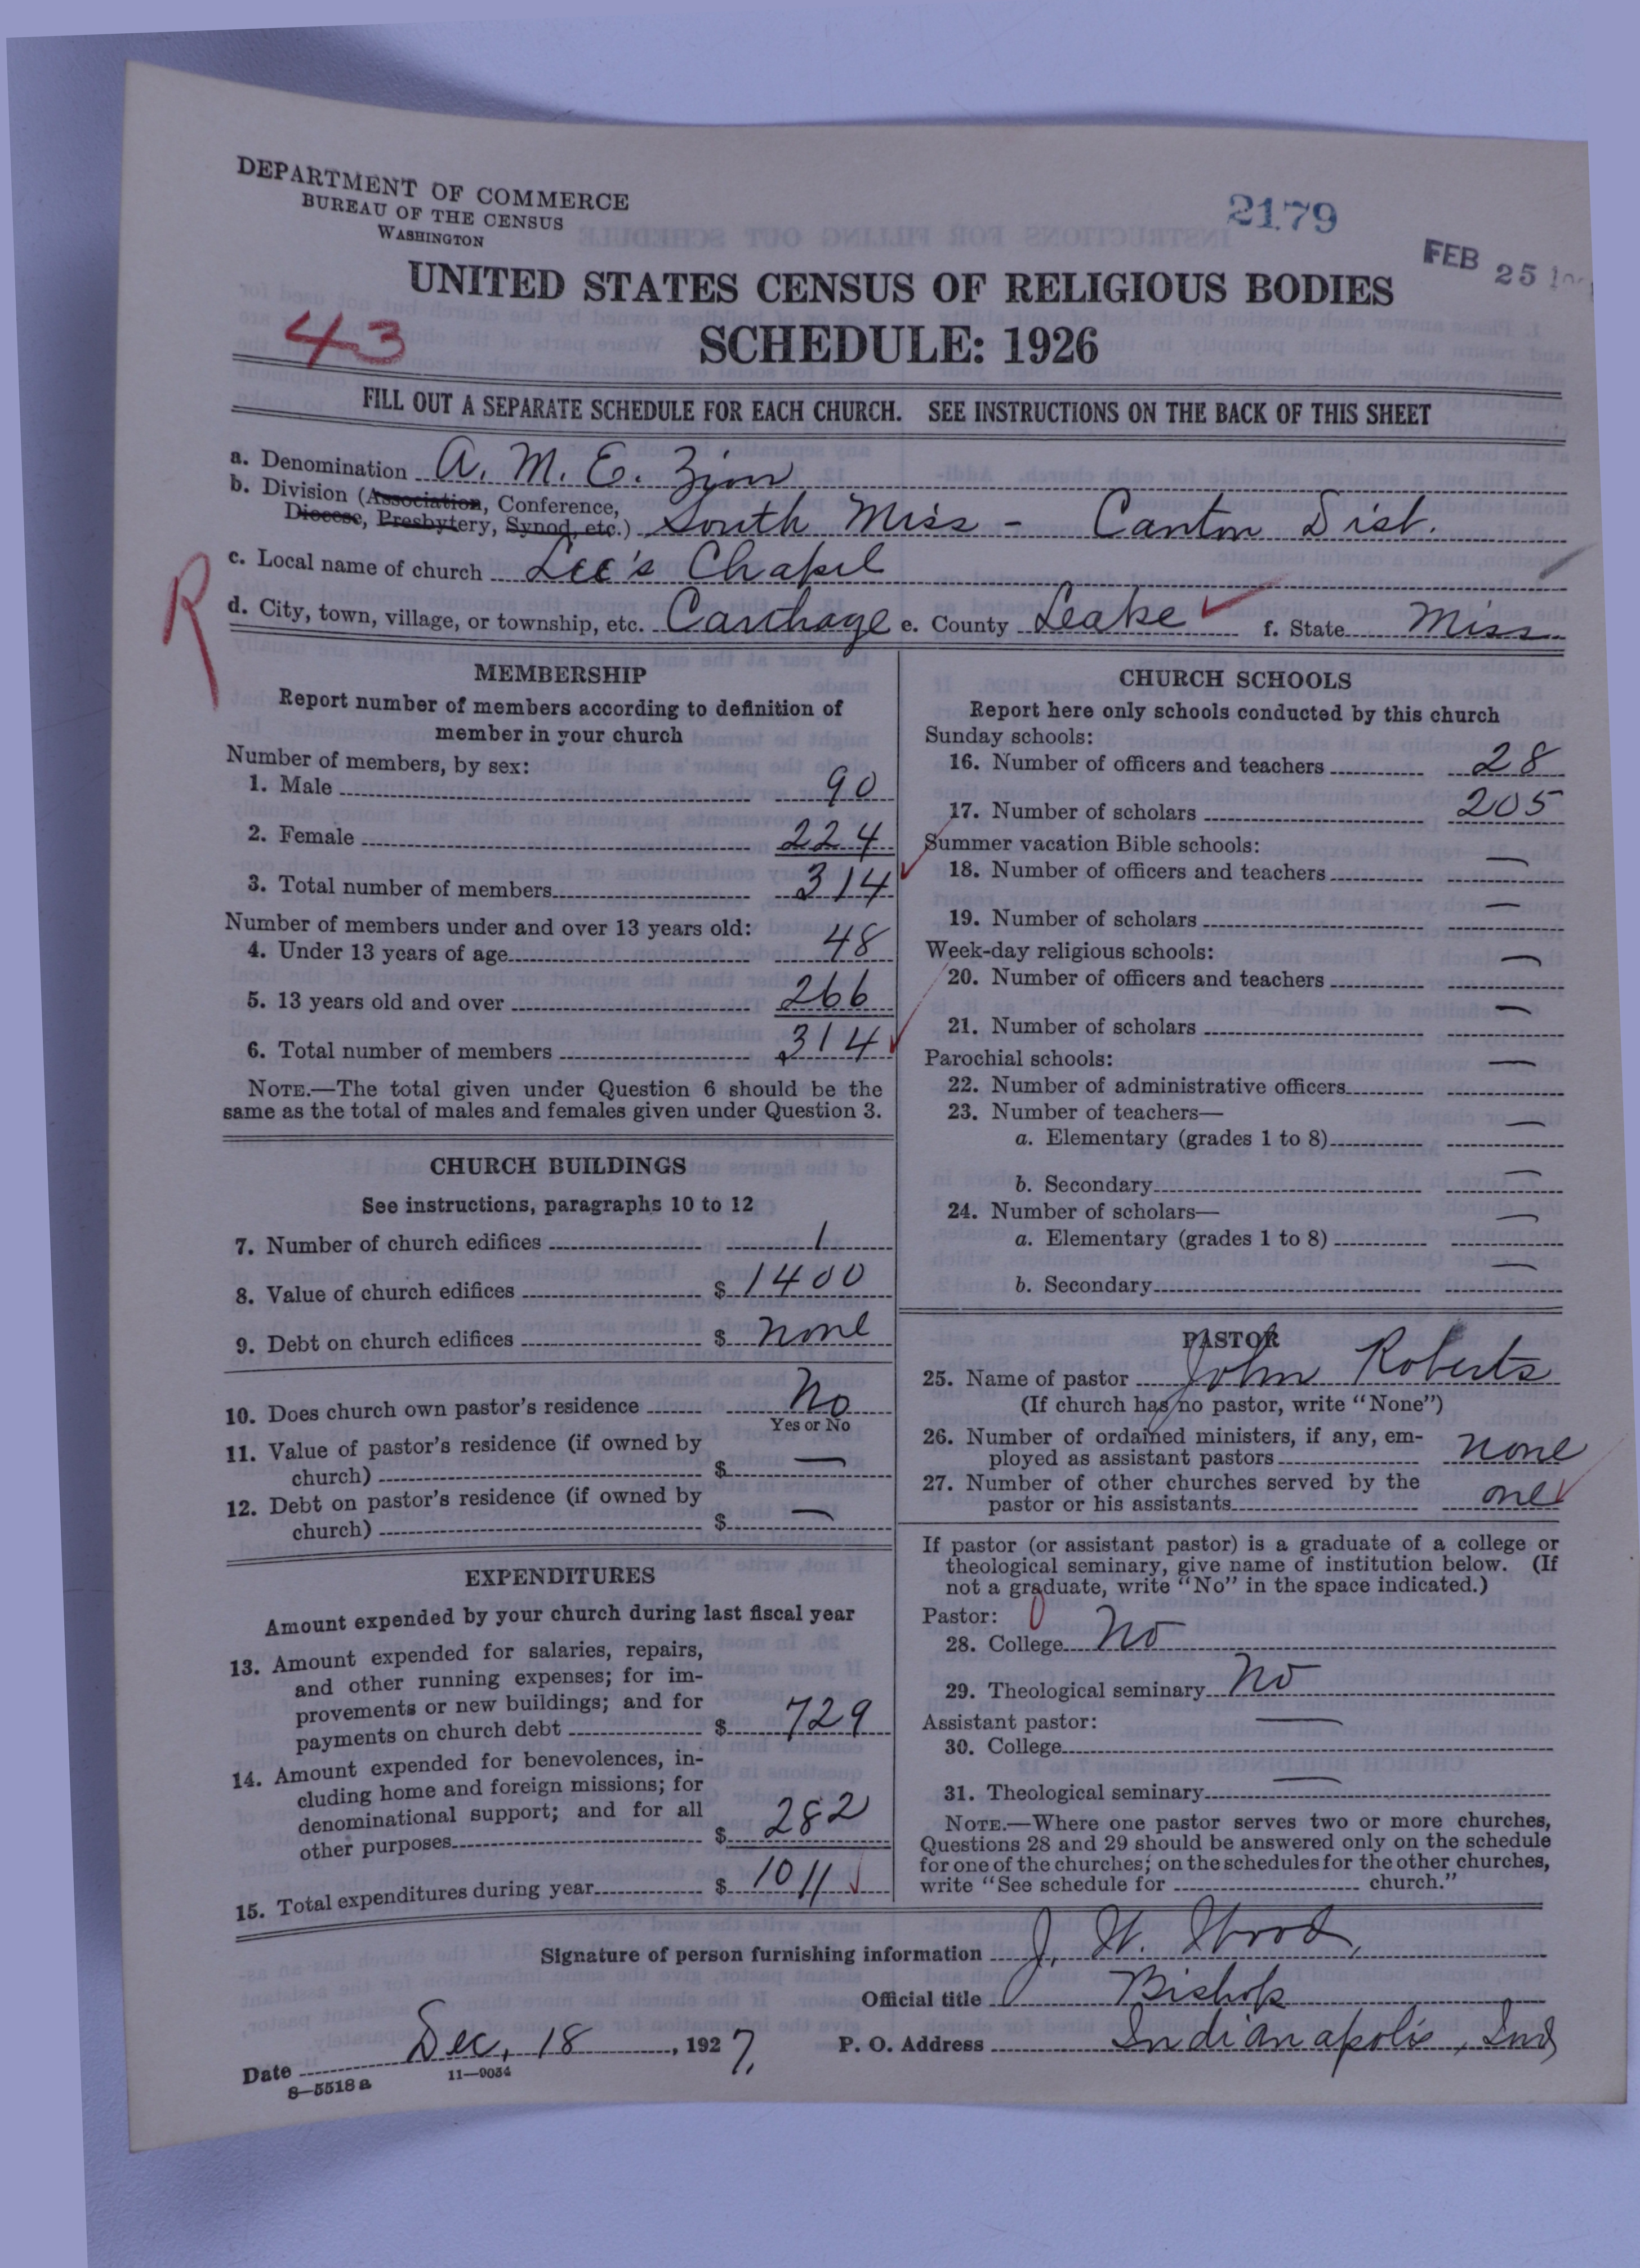 DEPARTMENT OF COMMERCE
BUREAU OF THE CENSUS
WASHINGTON
2179
FEB 25
UNITED STATES CENSUS OF RELIGIOUS BODIES
43
SCHEDULE: 1926
FILL OUT A SEPARATE SCHEDULE FOR EACH CHURCH. SEE INSTRUCTIONS ON THE BACK OF THIS SHEET
a. Denomination A. M. E. Zion
b. Division (Association, Conference,
Diocese, Presbytery, Synod, etc.) South Miss - Canton Dist.
c. Local name of church Lee's Chapel
R
d. City, town, village, or township, etc. Carthage e. County Leake f. State Miss
MEMBERSHIP
Report number of members according to definition of
member in your church
Number of members, by sex:
1. Male 90
2. Female 224
3. Total number of members 314
Number of members under and over 13 years old:
4. Under 13 years of age 48
5. 13 years old and over 266
6. Total number of members 314
NOTE.—The total given under Question 6 should be the
same as the total of males and females given under Question 3.
CHURCH BUILDINGS
See instructions, paragraphs 10 to 12
7. Number of church edifices 1
8. Value of church edifices $ 1400
9. Debt on church edifices $ none
10. Does church own pastor's residence No
Yes or No
11. Value of pastor's residence (if owned by
church) $ —
12. Debt on pastor's residence (if owned by
church) $ —
EXPENDITURES
Amount expended by your church during last fiscal year
13. Amount expended for salaries, repairs,
and other running expenses; for im-
provements or new buildings; and for
payments on church debt $ 729
14. Amount expended for benevolences, in-
cluding home and foreign missions; for
denominational support; and for all
other purposes $ 282
15. Total expenditures during year $ 1011
CHURCH SCHOOLS
Report here only schools conducted by this church
Sunday schools:
16. Number of officers and teachers 28
17. Number of scholars 205
Summer vacation Bible schools:
18. Number of officers and teachers —
19. Number of scholars —
Week-day religious schools:
20. Number of officers and teachers —
21. Number of scholars —
Parochial schools:
22. Number of administrative officers —
23. Number of teachers—
a. Elementary (grades 1 to 8) —
b. Secondary —
24. Number of scholars—
a. Elementary (grades 1 to 8) —
b. Secondary —
PASTOR
25. Name of pastor John Roberts
(If church has no pastor, write "None")
26. Number of ordained ministers, if any, em-
ployed as assistant pastors none
27. Number of other churches served by the
pastor or his assistants one
If pastor (or assistant pastor) is a graduate of a college or
theological seminary, give name of institution below. (If
not a graduate, write "No" in the space indicated.)
Pastor:
28. College No
29. Theological seminary No
Assistant pastor:
30. College —
31. Theological seminary —
NOTE.—Where one pastor serves two or more churches,
Questions 28 and 29 should be answered only on the schedule
for one of the churches; on the schedules for the other churches,
write "See schedule for church."
Signature of person furnishing information J. W. Wood,
Official title Bishop
Date Dec. 18, 1927. P. O. Address Indianapolis, Ind
8—5518a 11—9034